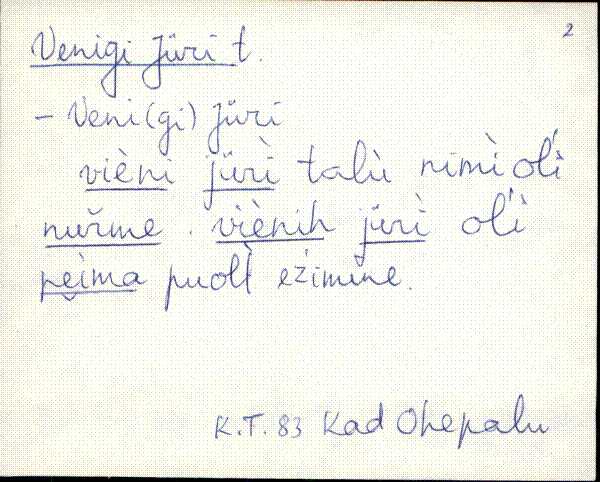 2
Venigi Jüri t.
- Veni(gi) Jüri
vièni jürì talù nimì ol'ì
nuřme. viènih jürì ol'ì
pei̯ma puolt ežimine.
K.T. 83 Kad Ohepalu